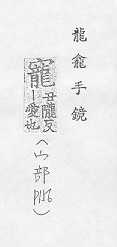 龍龕手鏡
寵丑隴反｜愛也(宀部